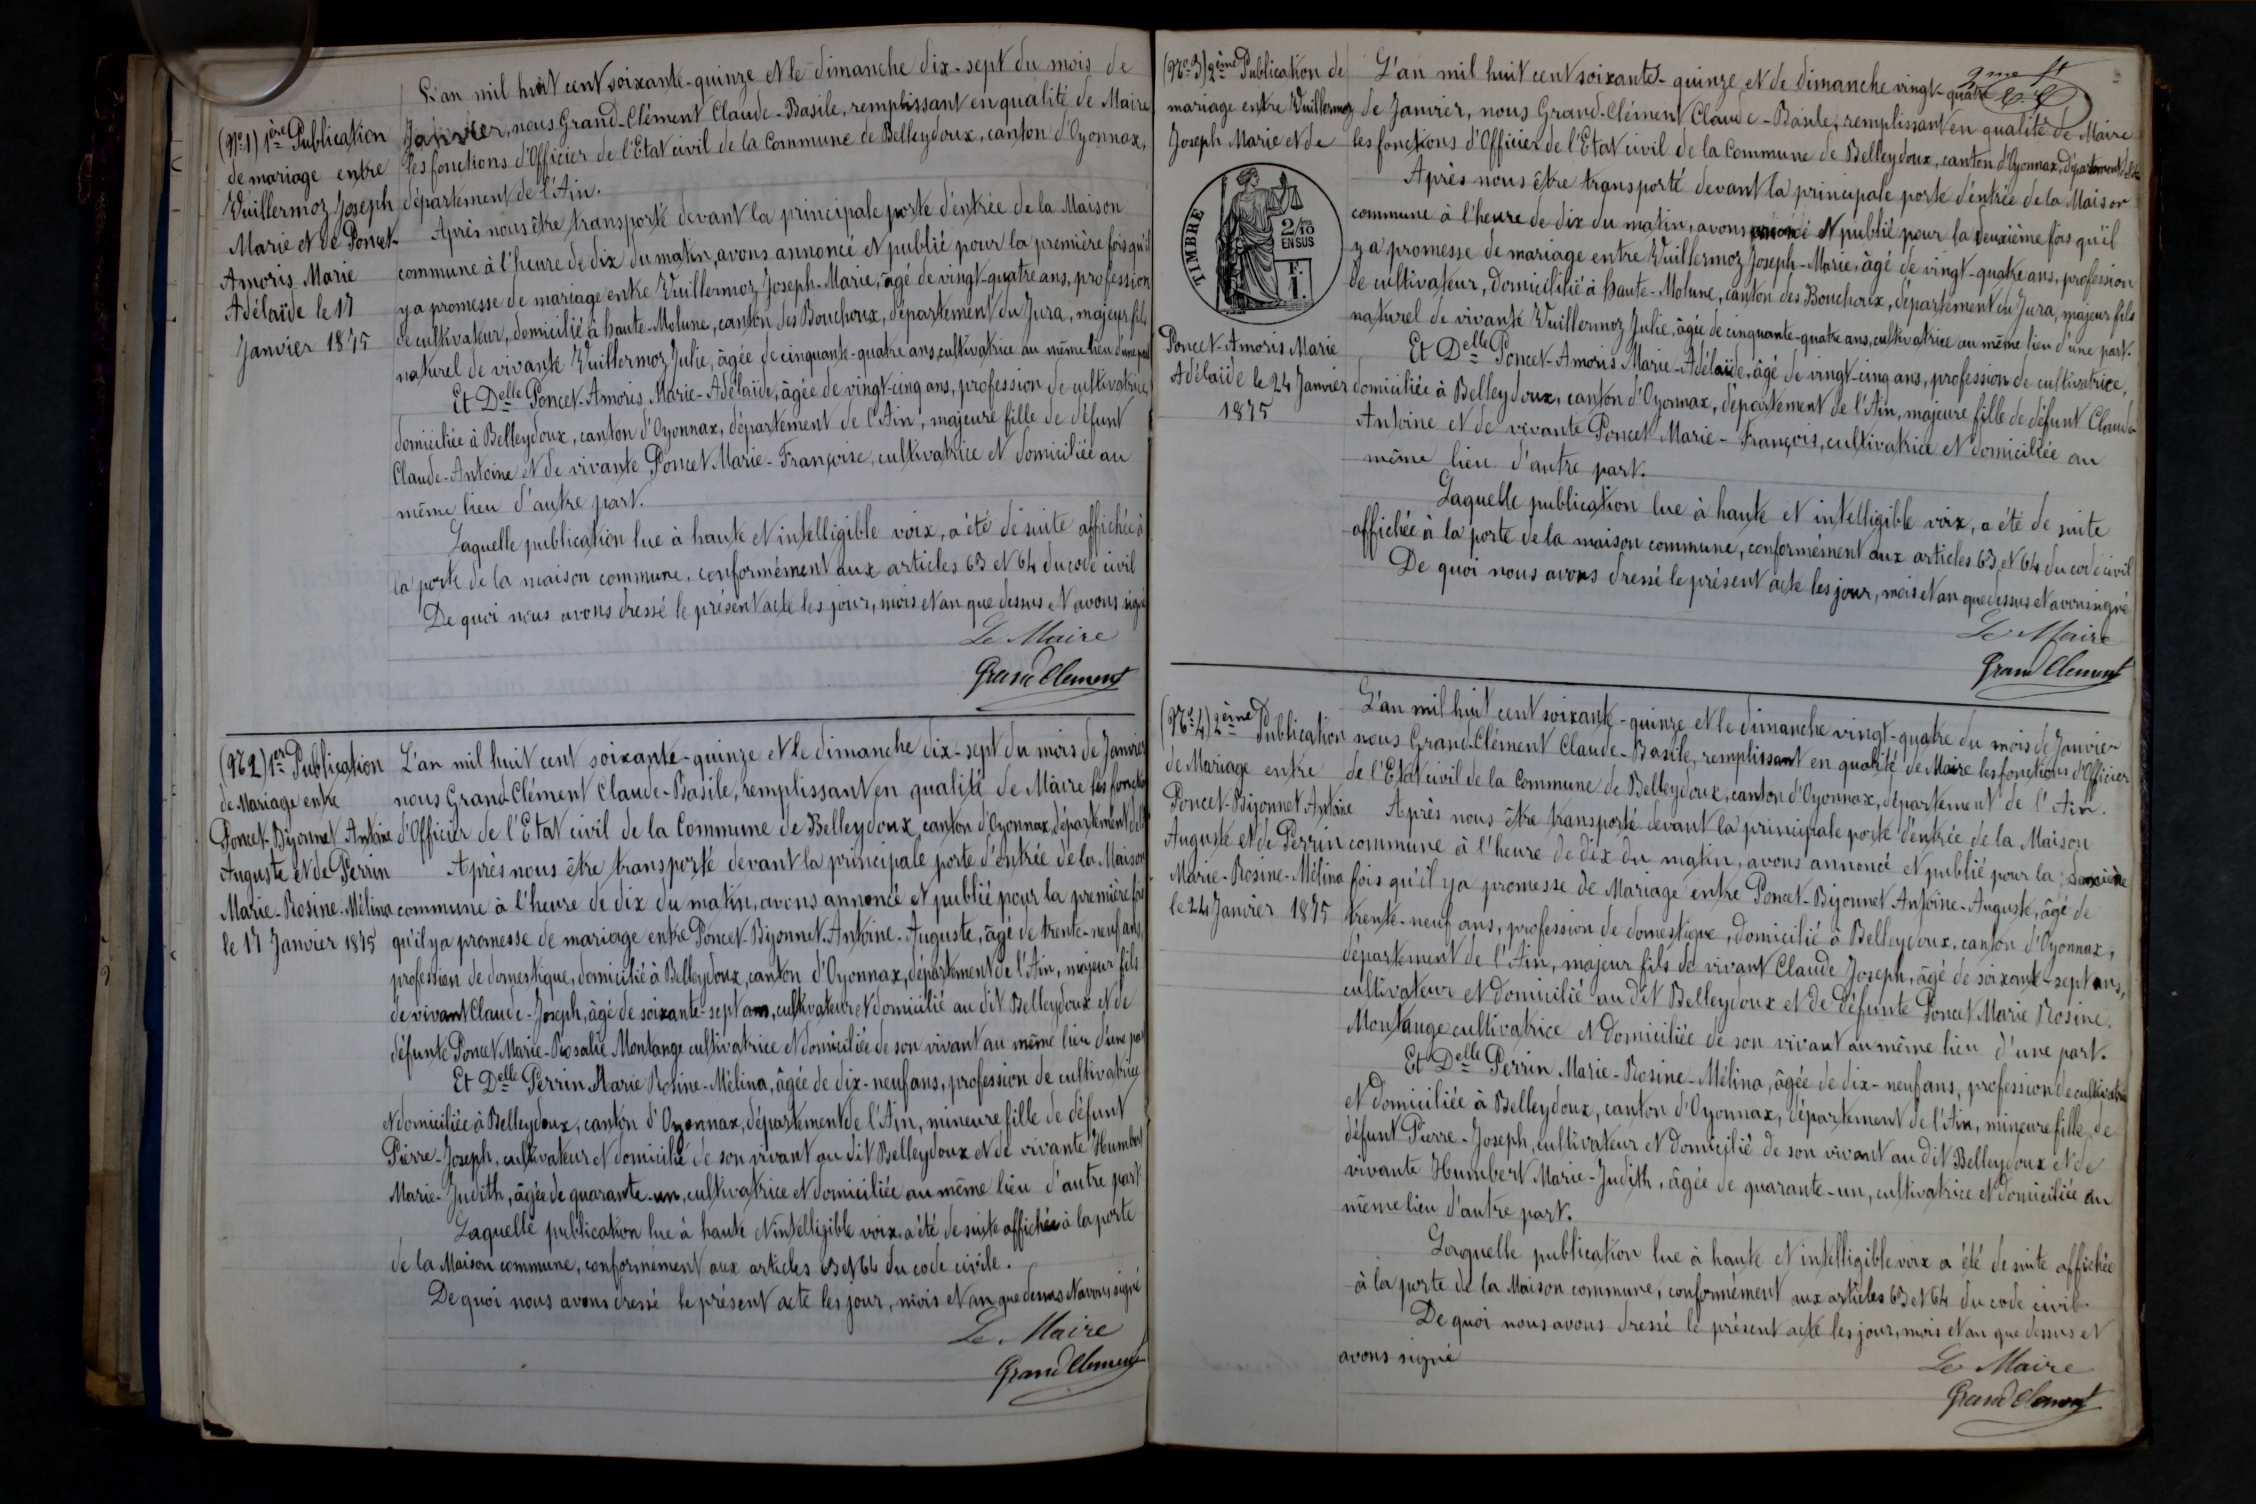 (No 1) 1ère Publication
de mariage entre
Vuillermoz Joseph
Marie et de Poncet-
Amoris Marie
Adélaïde le 17
Janvier 1875
L'an mil huit cent soixante-quinze et le dimanche dix-sept du mois de
Janvier, nous Grand-Clément Claude-Basile, remplissant en qualité de Maire
les fonctions d'Officier de l'Etat civil de la Commune de Belleydoux, canton d'Oyonnax,
département de l'Ain.
Après nous être transporté devant la principale porte d'entrée de la Maison
commune à l'heure de dix du matin, avons annoncé et publié pour la première fois qu'il
y a promesse de mariage entre Vuillermoz Joseph-Marie, âgé de vingt-quatre ans, profession
de cultivateur, domicilié à haute-Molune, canton des Bouchoux, département du Jura, majeur fils
naturel de vivante Vuillermoz Julie, âgée de cinquante-quatre ans, cultivatrice au même lieu d'une part
Et Delle Poncet-Amoris Marie-Adélaïde, âgée de vingt-cinq ans, profession de cultivatrice
domiciliée à Belleydoux, canton d'Oyonnax, département de l'Ain, majeure fille de défunt
Claude-Antoine et de vivante Poncet Marie-Françoise, cultivatrice et domiciliée au
même lieu d'autre part.
Laquelle publication lue à haute et intelligible voix, a été de suite affichée à
la porte de la maison commune, conformément aux articles 63 et 64 du code civil
De quoi nous avons dressé le présent acte les jour, mois et an que dessus et avons signé
Le Maire
Grand Clement
(No 2) 1er Publication
de Mariage entre
Poncet-Bijonnet Antoine
Auguste et de Perrin
Marie-Rosine-Mélina
le 17 Janvier 1875
L'an mil huit cent soixante-quinze et le dimanche dix-sept du mois de Janvier
nous Grand-Clément Claude-Basile, remplissant en qualité de Maire les fonctions
d'Officier de l'Etat civil de la Commune de Belleydoux, canton d'Oyonnax, département de l'Ain
Après nous être transporté devant la principale porte d'entrée de la Maison
commune à l'heure de dix du matin, avons annoncé et publié pour la première fois
qu'il y a promesse de mariage entre Poncet-Bijonnet-Antoine-Auguste, âgé de trente-neuf ans,
profession de domestique, domicilié à Belleydoux, canton d'Oyonnax, département de l'Ain, majeur fils
de vivant Claude-Joseph, âgé de soixante-sept ans, cultivateur et domicilié au dit Belleydoux et de
défunte Poncet Marie-Rosalie Montange cultivatrice et domiciliée de son vivant au même lieu d'une part
Et Delle Perrin Marie Rosine-Mélina, âgée de dix-neuf ans, profession de cultivatrice
et domiciliée à Belleydoux, canton d'Oyonnax, département de l'Ain, mineure fille de défunt
Pierre-Joseph, cultivateur et domicilié de son vivant au dit Belleydoux et de vivante Humbert
Marie-Judith, âgée de quarante-un, cultivatrice et domiciliée au même lieu d'autre part
Laquelle publication lue à haute et intelligible voix a été de suite affichée à la porte
de la Maison commune, conformément aux articles 63 et 64 du code civile.
De quoi nous avons dressé le présent acte les jour, mois et an que dessus et avons signé
Le Maire
Grand Clement
(No 3) 2ème Publication de
mariage entre Vuillermoz
Joseph Marie et de
TIMBRE
2/10
EN SUS
F.
1.
Poncet-Amoris Marie
Adélaïde le 24 Janvier
1875
2me ft
L'an mil huit cent soixante-quinze et de dimanche vingt-quatre
de Janvier, nous Grand-Clément Claude-Basile, remplissant en qualité de Maire
les fonctions d'Officier de l'Etat civil de la Commune de Belleydoux, canton d'Oyonnax, département de l'Ain
Après nous être transporté devant la principale porte d'entrée de la Maison
commune à l'heure de dix du matin, avons annoncé et publié pour la deuxième fois qu'il
y a promesse de mariage entre Vuillermoz Joseph-Marie, âgé de vingt-quatre ans, profession
de cultivateur, domicilié à haute-Molune, canton des Bouchoux, département du Jura, majeur fils
naturel de vivante Vuillermoz Julie, âgée de cinquante-quatre ans, cultivatrice au même lieu d'une part.
Et Delle Poncet-Amoris Marie-Adélaïde, âgé de vingt-cinq ans, profession de cultivatrice,
domiciliée à Belleydoux, canton d'Oyonnax, département de l'Ain, majeure fille de défunt Claude
Antoine et de vivante Poncet Marie-François, cultivatrice et domiciliée au
même lieu d'autre part.
Laquelle publication lue à haute et intelligible voix, a été de suite
affichée à la porte de la maison commune, conformément aux articles 63 et 64 du code civil
De quoi nous avons dressé le présent acte les jour, mois et an que dessus et avons signé
Le Maire
Grand Clement
(No 4) 2ème Publication
de Mariage entre
Poncet-Bijonnet Antoine
Auguste et de Perrin
Marie-Rosine-Mélina
le 24 Janvier 1875
L'an mil huit cent soixante-quinze et le dimanche vingt-quatre du mois de Janvier
nous Grand-Clément Claude-Basile, remplissant en qualité de Maire les fonctions d'Officier
de l'Etat civil de la Commune de Belleydoux, canton d'Oyonnax, département de l'Ain.
Après nous être transporté devant la principale porte d'entrée de la Maison
commune à l'heure de dix du matin, avons annoncé et publié pour la deuxième
fois qu'il y a promesse de Mariage entre Poncet-Bijonnet Antoine-Auguste, âgé de
trente-neuf ans, profession de domestique, domicilié à Belleydoux, canton d'Oyonnax,
département de l'Ain, majeur fils de vivant Claude Joseph, âgé de soixante-sept ans,
cultivateur et domicilié au dit Belleydoux et de défunte Poncet Marie Rosine.
Montange cultivatrice et domiciliée de son vivant au même lieu d'une part.
Et Delle Perrin Marie-Rosine-Mélina, âgée de dix-neuf ans, profession de cultivatrice
et domiciliée à Belleydoux, canton d'Oyonnax, département de l'Ain, mineure fille de
défunt Pierre-Joseph, cultivateur et domicilié de son vivant au dit Belleydoux et de
vivante Humbert Marie-Judith, âgée de quarante-un, cultivatrice et domiciliée au
même lieu d'autre part.
Laquelle publication lue à haute et intelligible voix a été de suite affichée
à la porte de la Maison commune, conformément aux articles 63 et 64 du code civil.
De quoi nous avons dressé le présent acte les jour, mois et an que dessus et
avons signé
Le Maire
Grand Clement